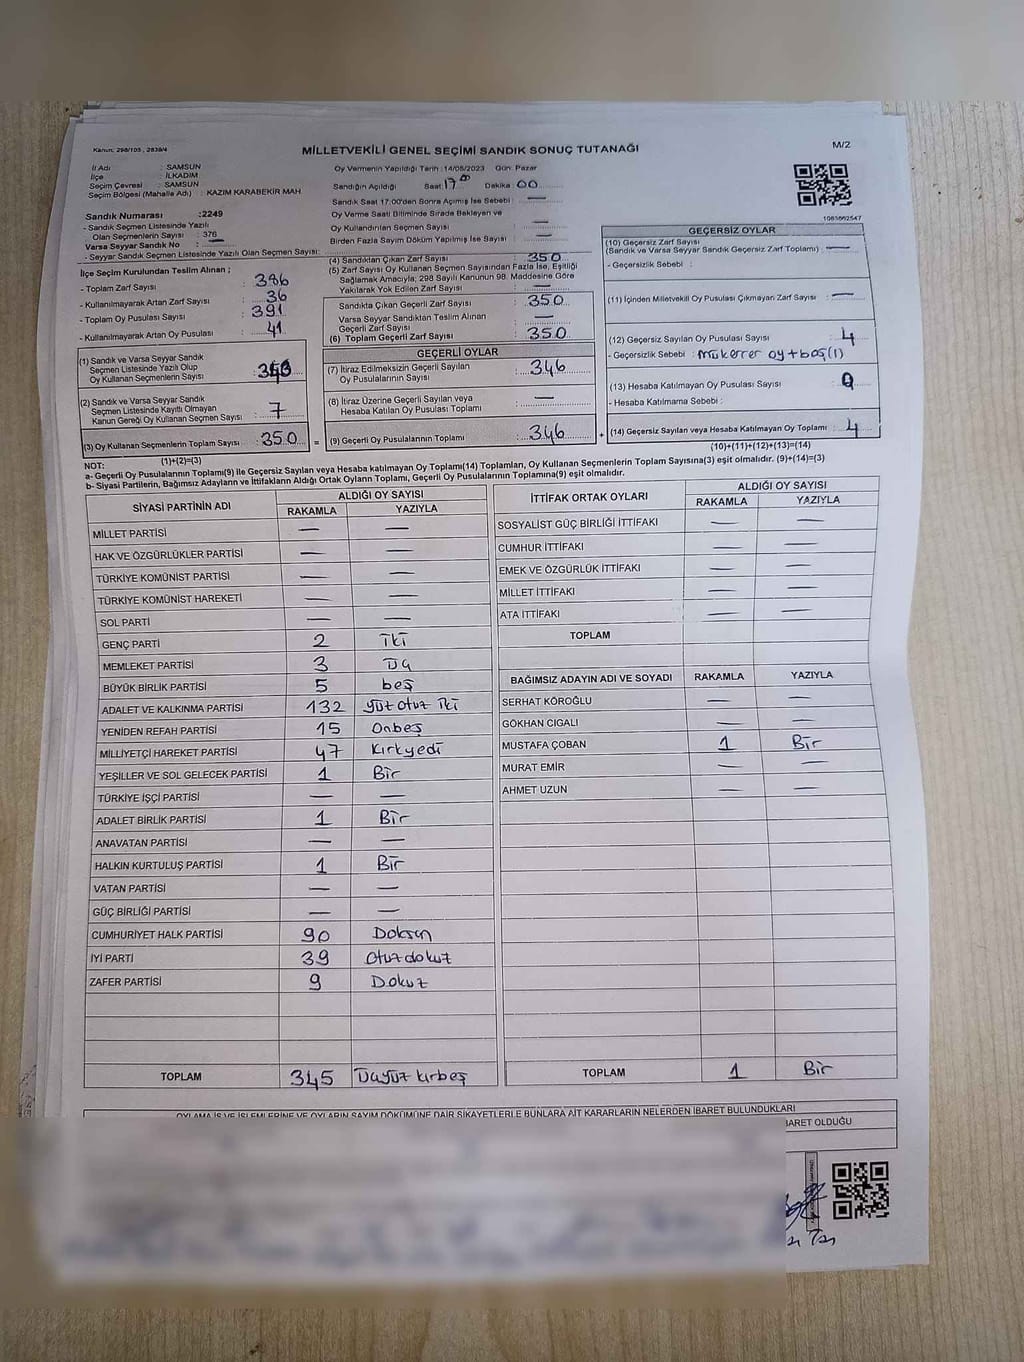 Kanun: 298/105, 2839/4
MİLLETVEKİLİ GENEL SEÇİMİ SANDIK SONUÇ TUTANAĞI
M/2
İl Adı : SAMSUN
İlçe : İLKADIM
Seçim Çevresi : SAMSUN
Seçim Bölgesi (Mahalle Adı) : KAZIM KARABEKİR MAH.
Sandık Numarası :2249
- Sandık Seçmen Listesinde Yazılı
Olan Seçmenlerin Sayısı : 376
Varsa Seyyar Sandık No : —
- Seyyar Sandık Seçmen Listesinde Yazılı Olan Seçmen Sayısı:
Oy Vermenin Yapıldığı Tarih :14/05/2023 Gün: Pazar
Sandığın Açıldığı Saat:17 00 Dakika:00
Sandık Saat 17:00'den Sonra Açımış İse Sebebi : —
Oy Verme Saati Bitiminde Sırada Bekleyen ve
Oy Kullandırılan Seçmen Sayısı : —
Birden Fazla Sayım Döküm Yapılmış İse Sayısı : —
1083662547
İlçe Seçim Kurulundan Teslim Alınan ;
- Toplam Zarf Sayısı : 386
- Kullanılmayarak Artan Zarf Sayısı : 36
- Toplam Oy Pusulası Sayısı : 391
- Kullanılmayarak Artan Oy Pusulası : 41
(1) Sandık ve Varsa Seyyar Sandık
Seçmen Listesinde Yazılı Olup
Oy Kullanan Seçmenlerin Sayısı : 343
(2) Sandık ve Varsa Seyyar Sandık
Seçmen Listesinde Kayıtlı Olmayan
Kanun Gereği Oy Kullanan Seçmen Sayısı : 7
(3) Oy Kullanan Seçmenlerin Toplam Sayısı : 350
(1)+(2)=(3)
(4) Sandıktan Çıkan Zarf Sayısı : 350
(5) Zarf Sayısı Oy Kullanan Seçmen Sayısından Fazla İse, Eşitliği
Sağlamak Amacıyla; 298 Sayılı Kanunun 98. Maddesine Göre
Yakılarak Yok Edilen Zarf Sayısı : —
Sandıkta Çıkan Geçerli Zarf Sayısı : 350
Varsa Seyyar Sandıktan Teslim Alınan
Geçerli Zarf Sayısı : —
(6) Toplam Geçerli Zarf Sayısı : 350
GEÇERLİ OYLAR
(7) İtiraz Edilmeksizin Geçerli Sayılan
Oy Pusulalarının Sayısı : 346
(8) İtiraz Üzerine Geçerli Sayılan veya
Hesaba Katılan Oy Pusulası Toplamı : —
= (9) Geçerli Oy Pusulalarının Toplamı : 346 +
GEÇERSİZ OYLAR
(10) Geçersiz Zarf Sayısı
(Sandık ve Varsa Seyyar Sandık Geçersiz Zarf Toplamı) : —
- Geçersizlik Sebebi :
(11) İçinden Milletvekili Oy Pusulası Çıkmayan Zarf Sayısı : —
(12) Geçersiz Sayılan Oy Pusulası Sayısı : 4
- Geçersizlik Sebebi : mükerrer oy+boş(1)
(13) Hesaba Katılmayan Oy Pusulası Sayısı : 0
- Hesaba Katılmama Sebebi :
(14) Geçersiz Sayılan veya Hesaba Katılmayan Oy Toplamı : 4
(10)+(11)+(12)+(13)=(14)
NOT:
a- Geçerli Oy Pusulalarının Toplamı(9) ile Geçersiz Sayılan veya Hesaba katılmayan Oy Toplamı(14) Toplamları, Oy Kullanan Seçmenlerin Toplam Sayısına(3) eşit olmalıdır. (9)+(14)=(3)
b- Siyasi Partilerin, Bağımsız Adayların ve İttifakların Aldığı Ortak Oyların Toplamı, Geçerli Oy Pusulalarının Toplamına(9) eşit olmalıdır.
SİYASİ PARTİNİN ADI ALDIĞI OY SAYISI
RAKAMLA YAZIYLA
MİLLET PARTİSİ — —
HAK VE ÖZGÜRLÜKLER PARTİSİ — —
TÜRKİYE KOMÜNİST PARTİSİ — —
TÜRKİYE KOMÜNİST HAREKETİ — —
SOL PARTİ — —
GENÇ PARTİ 2 iki
MEMLEKET PARTİSİ 3 üç
BÜYÜK BİRLİK PARTİSİ 5 beş
ADALET VE KALKINMA PARTİSİ 132 yüz otuz iki
YENİDEN REFAH PARTİSİ 15 Onbeş
MİLLİYETÇİ HAREKET PARTİSİ 47 Kırkyedi
YEŞİLLER VE SOL GELECEK PARTİSİ 1 Bir
TÜRKİYE İŞÇİ PARTİSİ — —
ADALET BİRLİK PARTİSİ 1 Bir
ANAVATAN PARTİSİ — —
HALKIN KURTULUŞ PARTİSİ 1 Bir
VATAN PARTİSİ — —
GÜÇ BİRLİĞİ PARTİSİ — —
CUMHURİYET HALK PARTİSİ 90 Doksan
İYİ PARTİ 39 Otuz dokuz
ZAFER PARTİSİ 9 Dokuz
TOPLAM 345 Üçyüz kırbeş
İTTİFAK ORTAK OYLARI ALDIĞI OY SAYISI
RAKAMLA YAZIYLA
SOSYALİST GÜÇ BİRLİĞİ İTTİFAKI — —
CUMHUR İTTİFAKI — —
EMEK VE ÖZGÜRLÜK İTTİFAKI — —
MİLLET İTTİFAKI — —
ATA İTTİFAKI — —
TOPLAM
BAĞIMSIZ ADAYIN ADI VE SOYADI RAKAMLA YAZIYLA
SERHAT KÖROĞLU — —
GÖKHAN CIGALI — —
MUSTAFA ÇOBAN 1 Bir
MURAT EMİR — —
AHMET UZUN — —
TOPLAM 1 Bir
OYLAMA İŞ VE İŞLEMLERİNE VE OYLARIN SAYIM DÖKÜMÜNE DAİR ŞİKAYETLERLE BUNLARA AİT KARARLARIN NELERDEN İBARET BULUNDUKLARI
BARET OLDUĞU